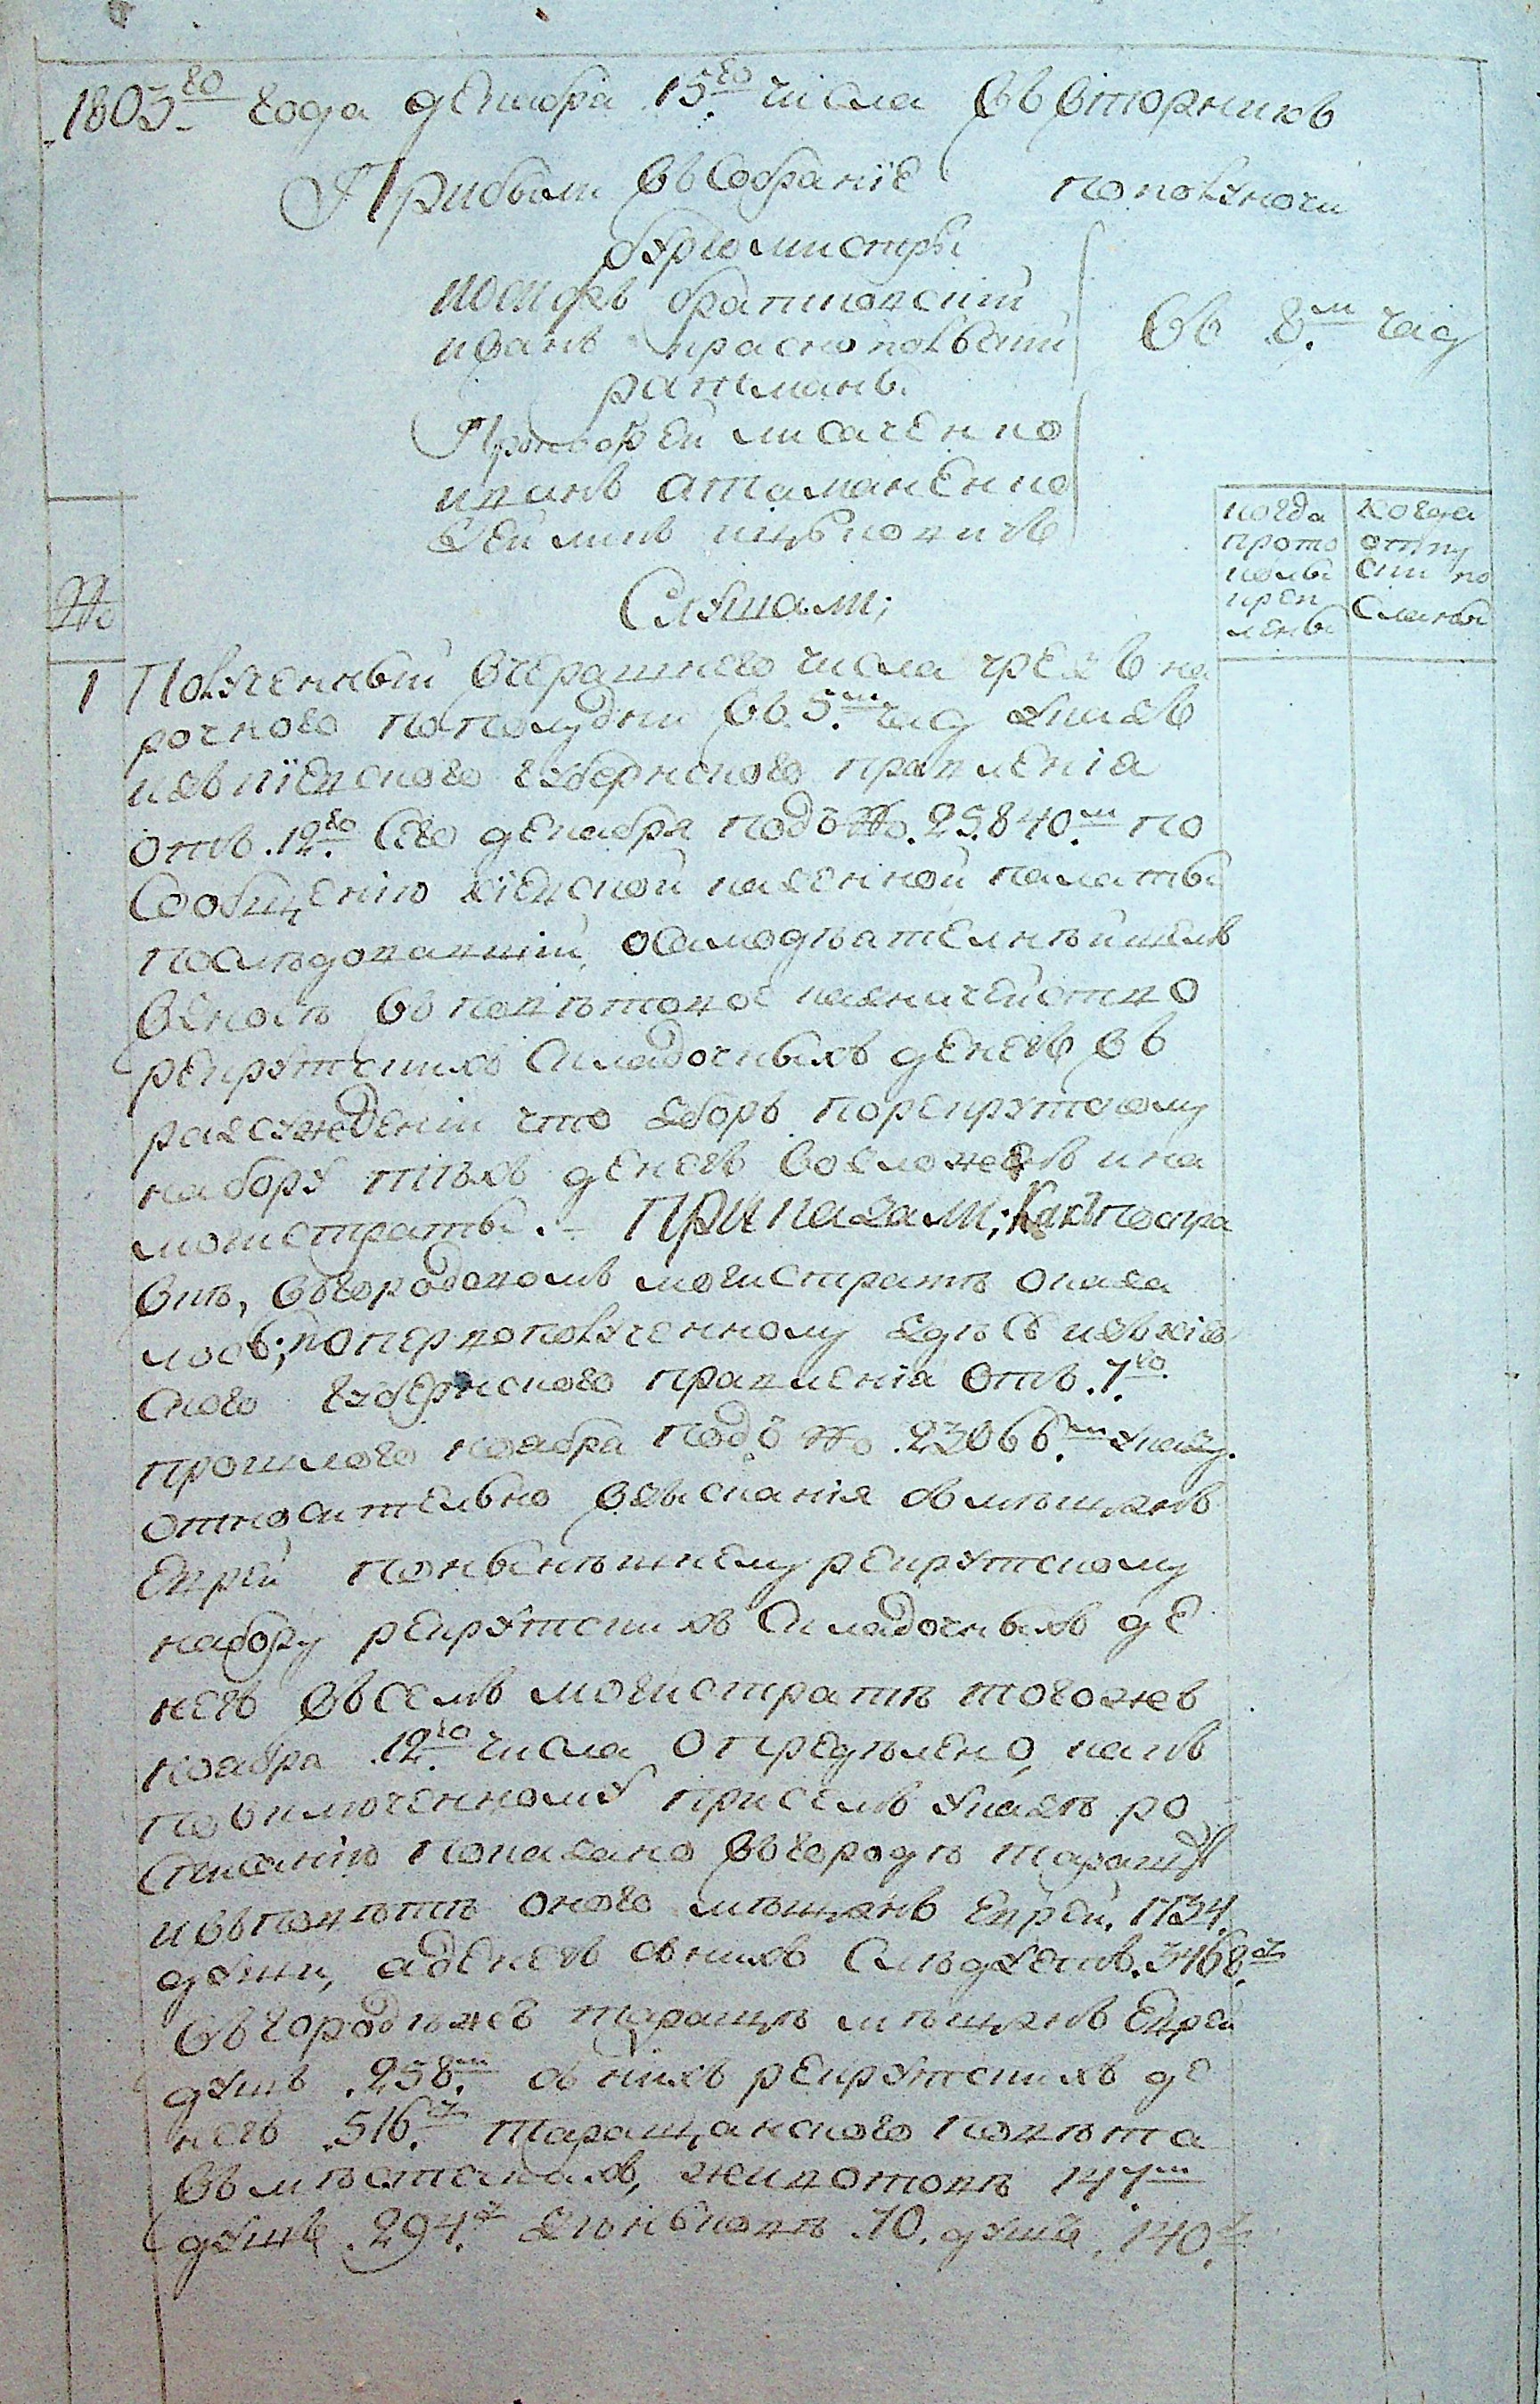 1803го года декабра 15го числа въ вторникъ
Прибыли въ Собранiе пополуночи
бургомистры
иосифъ братковский
иванъ краснополский
въ 8м часу
ратманы
Прокофей лисаченко
иванъ атаманенко
Слушали;
№
когда прото колы крен лены
когда отпу сти по сланы
1 Полученный вчерашнего числа чрезъ на
рочного пополудни въ 5м часу указъ
изъ кiевского губернского правленiа
отъ .12го Сего декабря подъ № .25840м по
Сообщению кiевской казенной палаты
последовавшiй, осамодѣателнѣйшемъ
взносѣ во повѣтовое казначейство
рекрутскихъ Складочныхъ денегъ въ
разсуждении что зборъ порекрутскому
набору тѣхъ денегъ возложенъ ина
магистраты. – Приказали; Какъ посправ
вкѣ, въгородовомъ магистратѣ оказа
лось; поперво полученному здѣсь изъ кiев
ского губернского правленiа отъ .7го
прошлого ноабра подъ № .23066м указу.
относително взысканiя съ мѣщанъ
Еврей понынѣшнему рекрутскому
набору рекрутскихъ Складочныхъ де
негъ въ семъ магистратѣ тогожъ
ноабра .12го числа опредѣлено, какъ
по включенному присемъ указѣ ро
списанiю показано въгородѣ таращѣ
и въповѣтѣ оного мѣщанъ Еврей. 1734.
души, аденегъ съ нихъ Слѣдуетъ. 3468р
въ городѣжъ таращѣ мѣщанъ Еврей
душъ .258м съ нихъ рекрутскихъ де
негъ .516р таращанского повѣта
въ мѣстечкахъ, животовѣ 147м
душъ .294р зѣньковѣ .70. душъ .140р